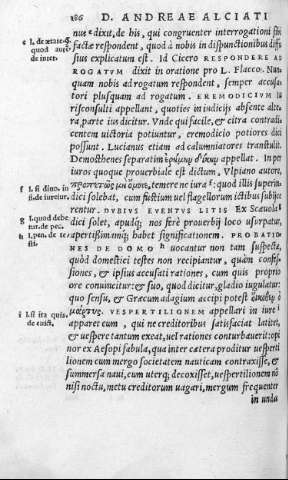 186 D. ANDREAE ALCIATI
nus dixit, de his, qui congruenter interrogationi sti
factæ respondent, quod à nobis in dispunctionibus diffu
sius explicatum est. Id Cicero RESPONDERE AD
ROGATVM dixit in oratione pro L. Flacco. Nun
quam nobis ad rogatum respondent, semper accusa
tori plusquam ad rogatum. EREMODICIVM iu
risconsulti appellant, quoties in iudicijs absente alte
ra parte ius dicitur. Vnde qui facile, & citra contradi
centem uictoria potiuntur, eremodicio potiores dici
possunt. Lucianus etiam ad calumniatores transtulit.
Demosthenes separatim appellat. In per
iuros quoque prouerbiale est dictum, Vlpiano autore,
temere ne iura: quod illis superin
dici solebat, cum fustium uel flagellorum ictibus subijce
rentur. DVBIVS EVENTVS LITIS Ex Scæuola
dici solet, apud nos ferè prouerbij loco usurpatur,
apertissimamque habet significationem. PROBATIO
NES DE DOMO uocantur non tam suspectæ,
quòd domestici testes non recipiantur, quàm confes-
siones, & ipsius accusati rationes, cum quis proprio
ore conuincitur: & suo, quod dicitur, gladio iugulatur:
quo sensu, & Græcum adagium accipi potest
VESPERTILIONEM appellari in iure
apparet eum, qui ne creditoribus satisfaciat latitet,
& uespere tantum exeat, uel rationes conturbauerit: opi
nor ex Aesopi fabula, quæ inter cætera proditur uesperti
lionem cum mergo societatem nauticam contraxisse, &
summersa naui, cum uterque decoxisset, uespertilionem nō
nisi noctu, metu creditorum uagari, mergum frequenter
in unda